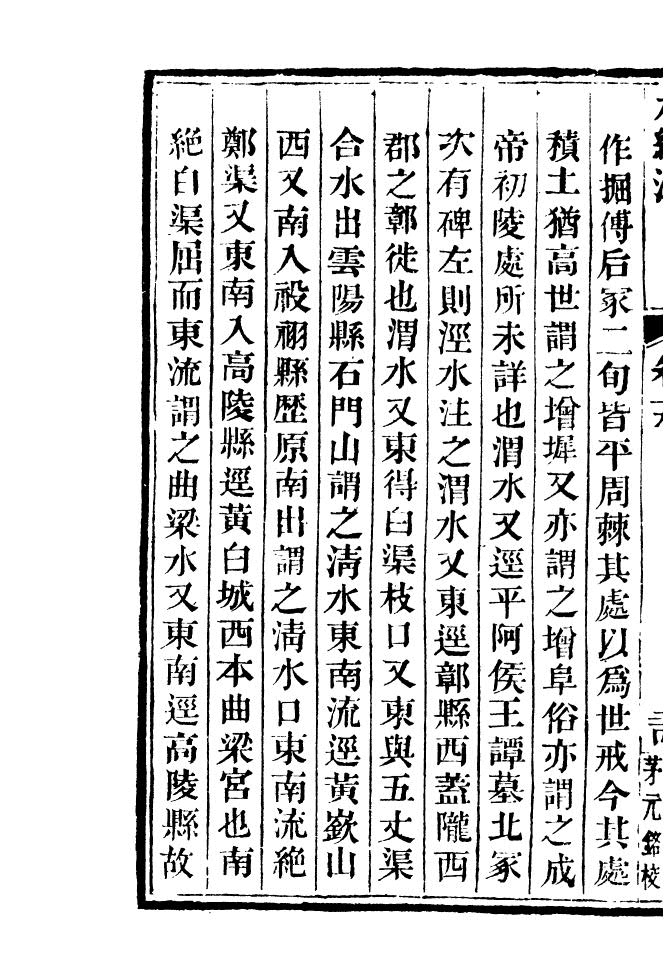 作掘傅后冢二旬皆平周棘其處以爲世戒今其處
積土猶高世謂之增墀又亦謂之增阜俗亦謂之成
帝初陵處所未詳也渭水又逕平阿侯王譚墓北冢
次有碑左則涇水注之渭水又東逕鄣縣西蓋隴西
郡之鄣徙也渭水又東得白渠枝口又東與五丈渠
合水出雲陽縣石門山謂之淸水東南流逕黃嶔山
西又南入祋祤縣歷原南出謂之淸水口東南流絶
鄭渠又東南入高陵縣逕黃白城西本曲梁宮也南
絶白渠屈而東流謂之曲梁水又東南逕高陵縣故
茅元銘校